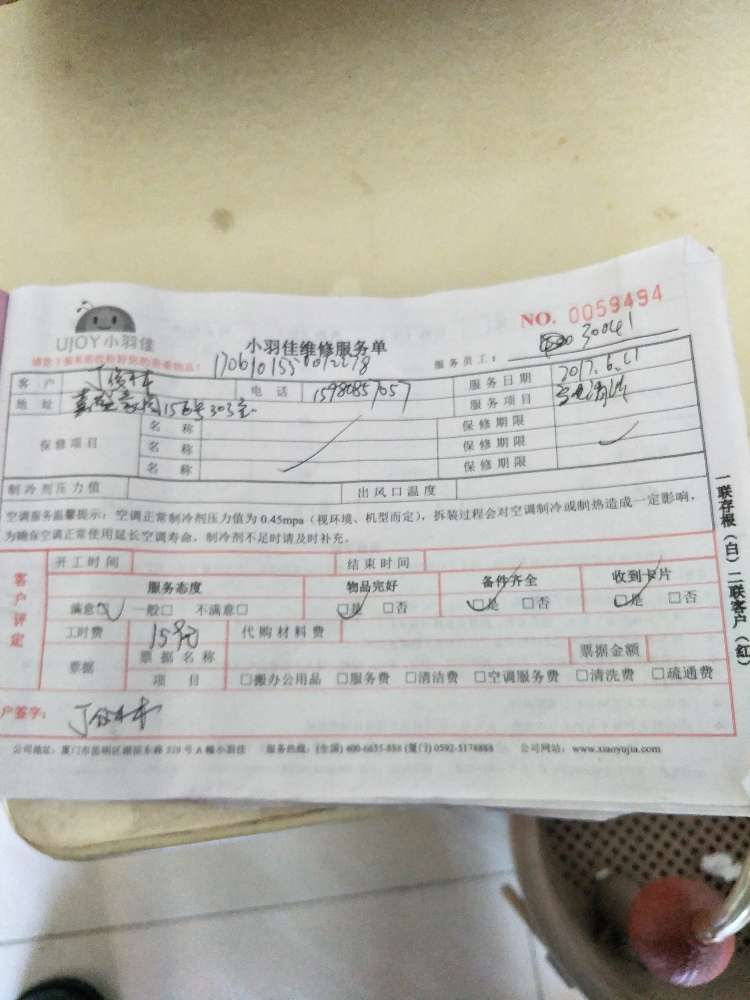 UJOY小羽佳
小羽佳维修服务单
NO. 0059494
服务员工： 30041
客户 电话 15980857057 服务日期 2017.6.21
地址 156号303室 服务项目
保修项目 名称 保修期限
名称 保修期限
名称 保修期限
制冷剂压力值 出风口温度
空调服务温馨提示：空调正常制冷剂压力值为0.45mpa（视环境、机型而定），拆装过程会对空调制冷或制热造成一定影响，
为确保空调正常使用延长空调寿命，制冷剂不足时请及时补充。
客户评定
开工时间 结束时间
服务态度 物品完好 备件齐全 收到卡片
满意□ 一般□ 不满意□ □是 □否 □是 □否 □是 □否
工时费 15元 代购材料费
票据 票据名称 票据金额
项目 □搬办公用品 □服务费 □清洁费 □空调服务费 □清洗费 □疏通费
户签字：
公司地址：厦门市思明区湖滨东路319号A幢小羽佳 服务热线：(全国) 400-6655-888 (厦门) 0592-5178888 公司网站：www.xiaoyujia.com
一联存根（白）二联客户（红）